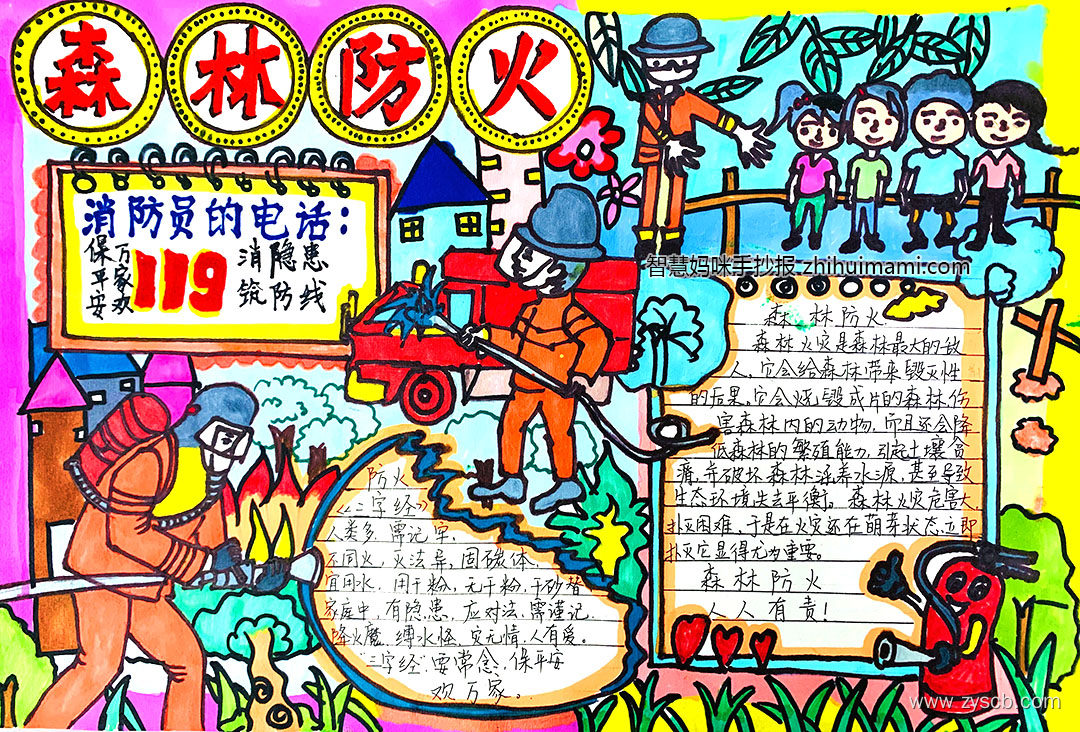 森林防火
消防员的电话：
保平安
万家欢
119
消隐患
筑防线
智慧妈咪手抄报 zhihuimami.com
森林防火
森林火灾是森林最大的敌
人，它会给森林带来毁灭性
的后果，它会烧毁成片的森林，伤
害森林内的动物，而且还会降
低森林的繁殖能力，引起土壤贫
瘠，并破坏森林涵养水源，甚至导致
生态环境失去平衡。森林火灾危害大，
扑灭困难，于是在火灾还在萌芽状态，立即
扑灭它显得尤为重要。
森林防火
人人有责！
防火
《三字经》
人类多，需记牢，
不同火，灭法异，固碳体
宜用水，用干粉，无干粉，干砂替
家庭中，有隐患，应对法，需谨记
降火魔，缚水怪，灾无情，人有爱。
“三字经”要常念，保平安
欢万家。
www.zyscb.com